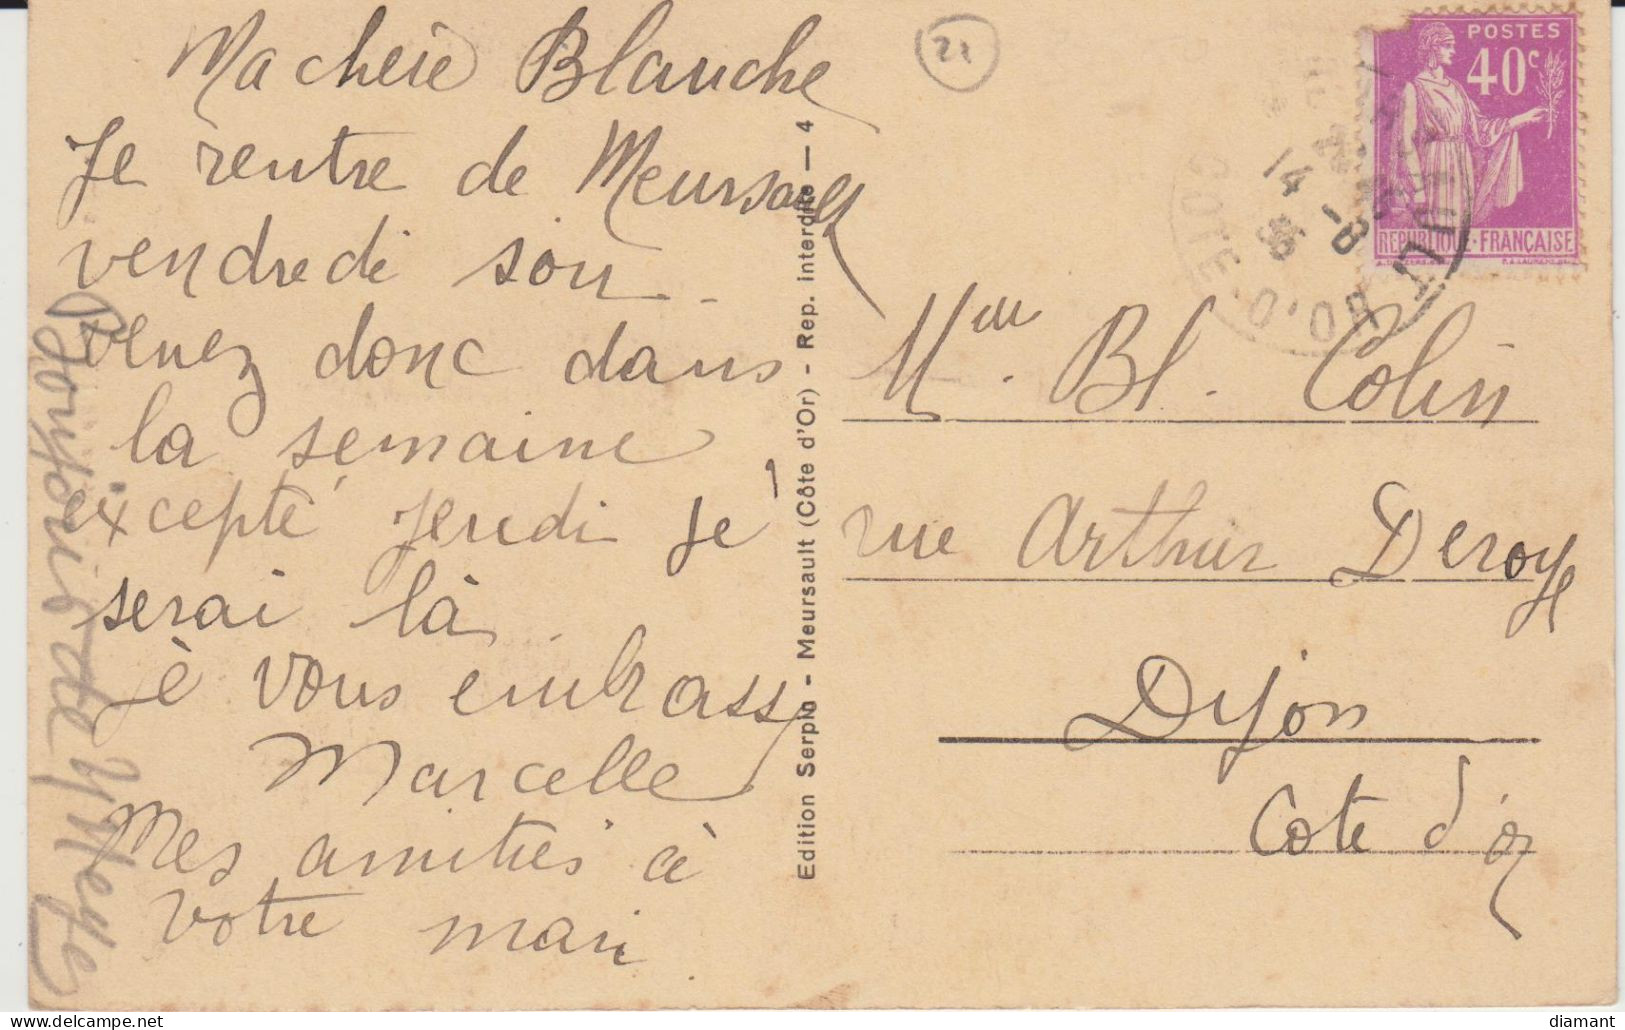 Ma chère Blanche
Je rentre de Meursault
vendredi soir.
Venez donc dans
la semaine
excepté jeudi je
serai là
Je vous embrasse
Marcelle
Mes amitiés à
votre mari.
Bonjour de
21
POSTES
40c
REPUBLIQUE·FRANÇAISE
14 -8
36
COTE-D'OR
Edition Serpin - Meursault (Côte d'Or) - Rep. interdite — 4
Mme. Bl. Colin
rue Arthur Deroye
Dijon
Cote d'or
diamant